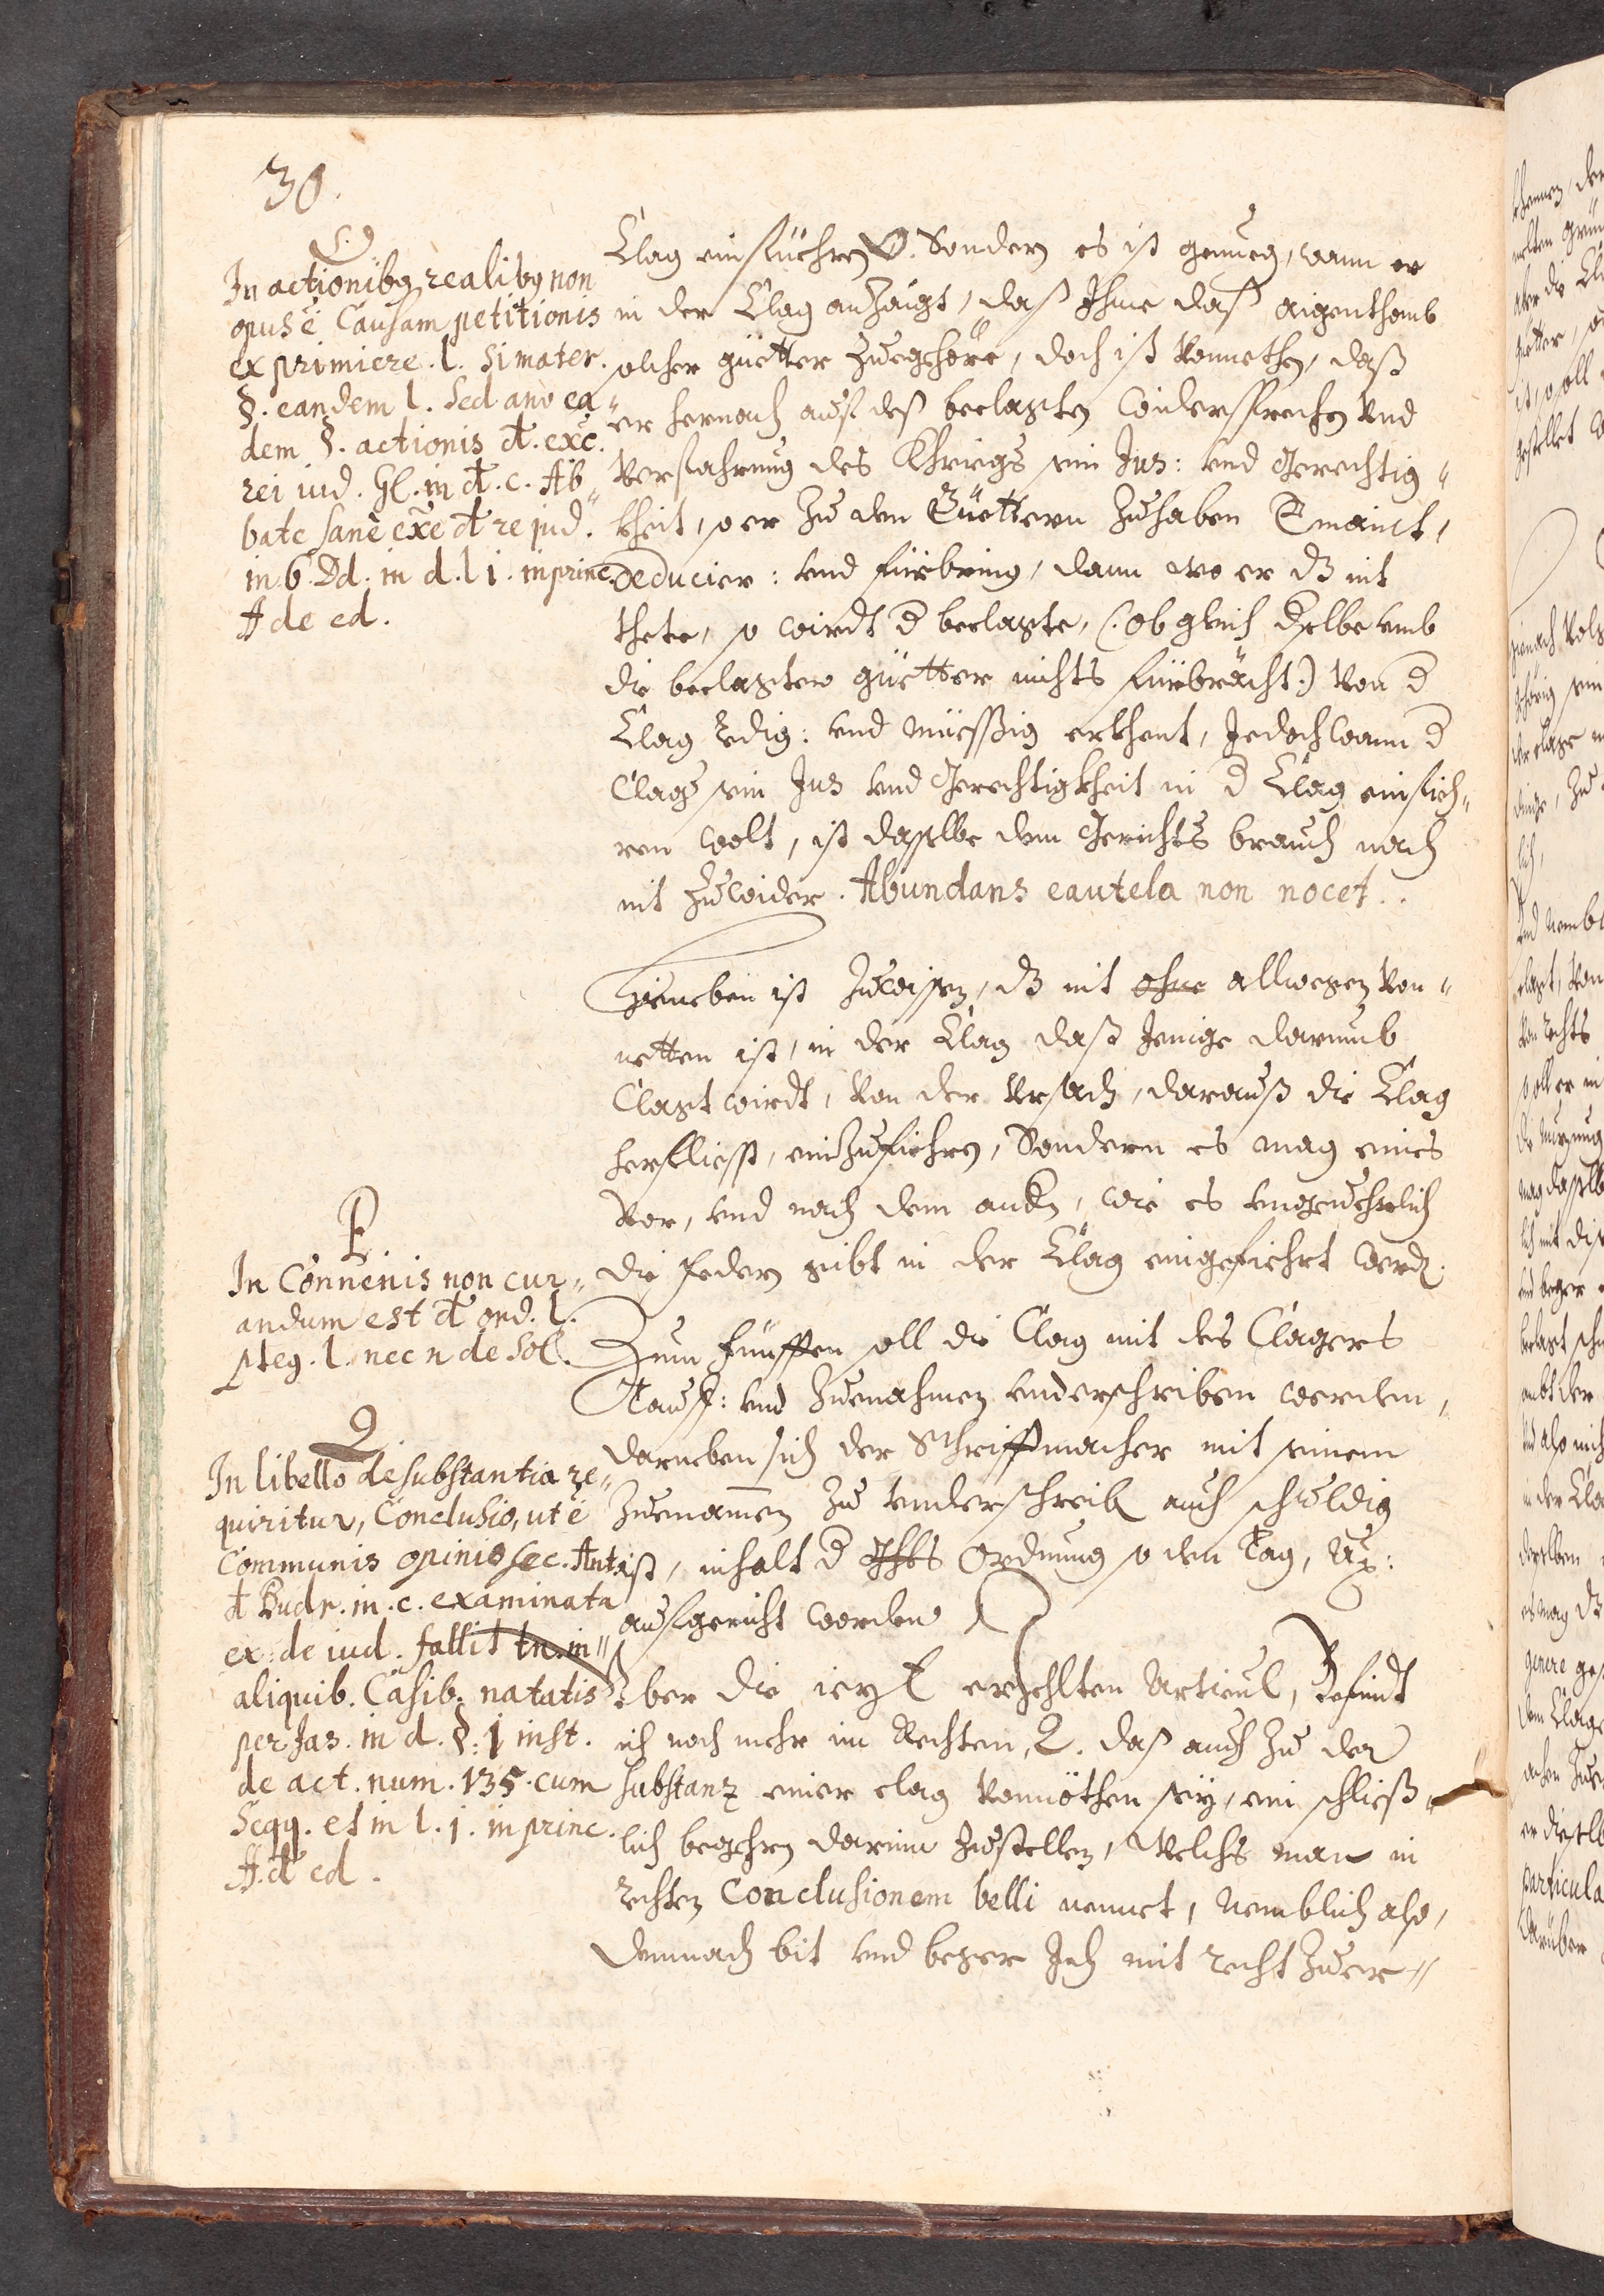 30.
O
In actionibq realibq non
opus ē Causam petitionis
ex primiere. l. Si mater.
§. eandem l. Sed an
dem §. actionis dt. exc.
rei iud. Gl. in dt. c. Ab"
bate sanē exē dt re jud.
in 6. Dd. in d. l i. in princ.
ff de ed.
Clag einfüehren O. Sondern es ist genueg, wann er
in der Clag anzaigt, daß Ihme daß aigenthomb
solcher güetter zuegehöre, doch ist vonnethen, daß
er hernach auf deß beclagten widersprechen vnd
verfahrung des Khriegs sein Jus: vnd Gerechtig"
kheit, so er zu den Güettern zuhaben Vmaint,
deducier: vnd fürbring, dann wo er dz nit
thete, so wirdt d beclagte, (: ob gleich dselbe vmb
die beclagten güetter nichts fürbrächt:) von d
Clag ledig: vnd müessig erkhent, Jedoch wann d
Clag sein Jus vnd Gerechtigkheit in d Clag einfieh"
ren wolt, ist dasselbe dem Gerichts brauch nach
nit zuwider. Abundans cautela non nocet..
Hieneben ist zuwissen, dz nit ohne allwegen von"
netten ist, in der Clag daß Jenige darumb
Clagt wirdt, von der vrsach, darauß die Clag
herfliesst, einzufiehren, Sondern es mag eines
vor, vnd nach dem andn, wie es vngeuehrlich
die federn gibt in der Clag eingefiehrt werdn.
P
In Connenis non cur"
andum est dt ord. l.
pteg. l. nec n de Sol.
Zum Fünfften soll die Clag mit des Clagers
Tauff: vnd Zuenahmen vnderschriben werden,
darneben sich der Schrifftmacher mit seinem
Zuenamen zu vnderschreibn auch schuldig
ist, inhalt d Ghts Ordnung so den Tag,
aufgericht worden
Q
In libello de substantia re"
quiritur, Conclusio, ut ē
Communis opinio sec. Ant.
dt Budr. in. c. examinata
ex: de iud. fallit tn. in"
aliquib. Casib. natatis
per Jas. in d. §. j inst.
de act. num. 135. cum
Seqq. et in l. j. in princ.
ff. dt ed.
Vber die iezt erzehlten Articul, Befindt
ich noch mehr im Rechten, Q. daß auch zu der
substanz einer clag vonnöthen sey, ein schließ"
lich begehrn darinn zustellen, welchs man in
rechten Conclusionem belli nennet, Nemblich also,
demnach bit vnd beger Ich mit recht zuer"